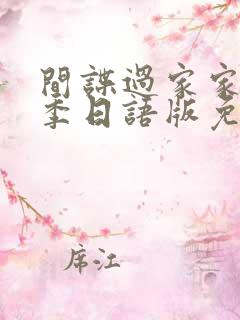 間諜過家家
季日語版免
席江